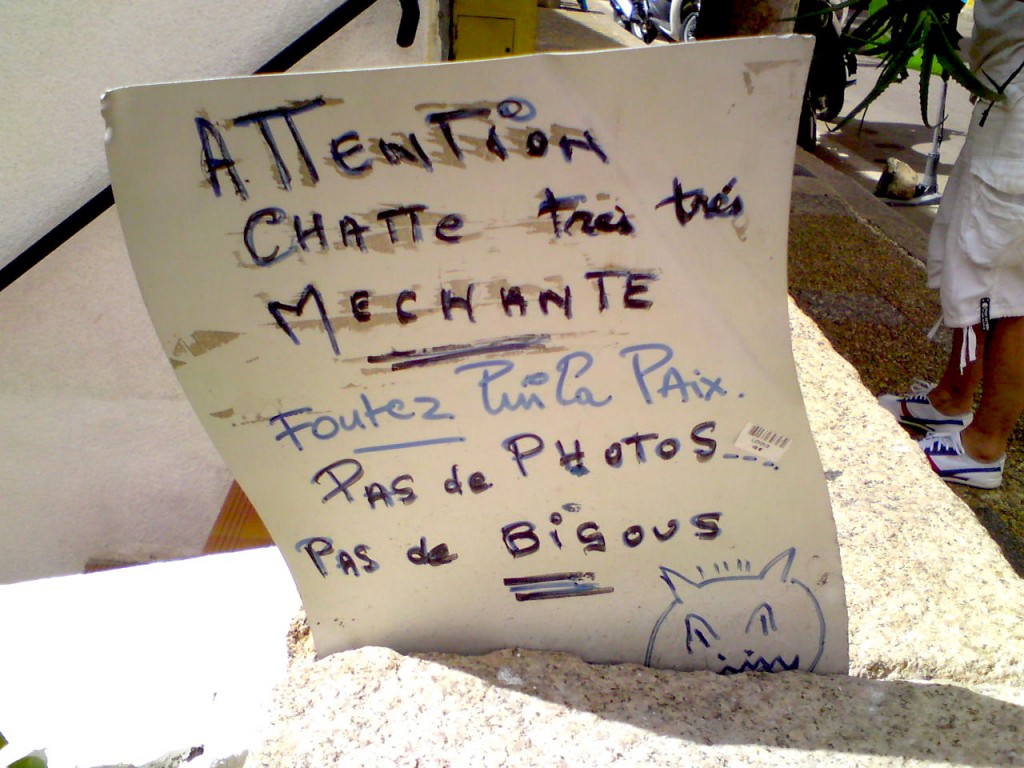 ATTENTION
CHATTE très très
MECHANTE
FOUTEZ lui la PAix.
PAS de PHOTOS....
PAS de BiSOUS